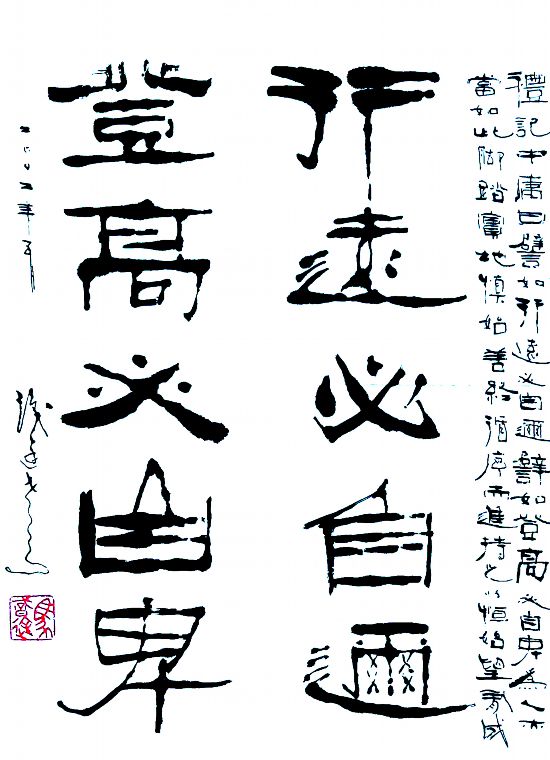 禮記中庸曰譬如行遠必自邇譬如登高必自卑為人亦
當如此脚踏實地慎始善終循序而進持之以恒始望有成
行遠必自邇
登高必由卑
馬識途